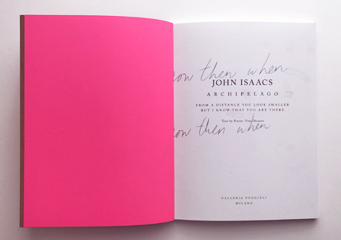 now then when
JOHN ISAACS
ARCHIPELAGO
FROM A DISTANCE YOU LOOK SMALLER
BUT I KNOW THAT YOU ARE THERE
Text by
now then when
GALLERIA POGGIALI
MILANO